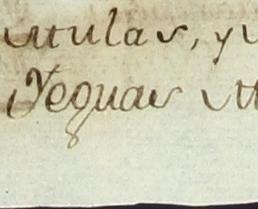 Mulas, y
Yeguas